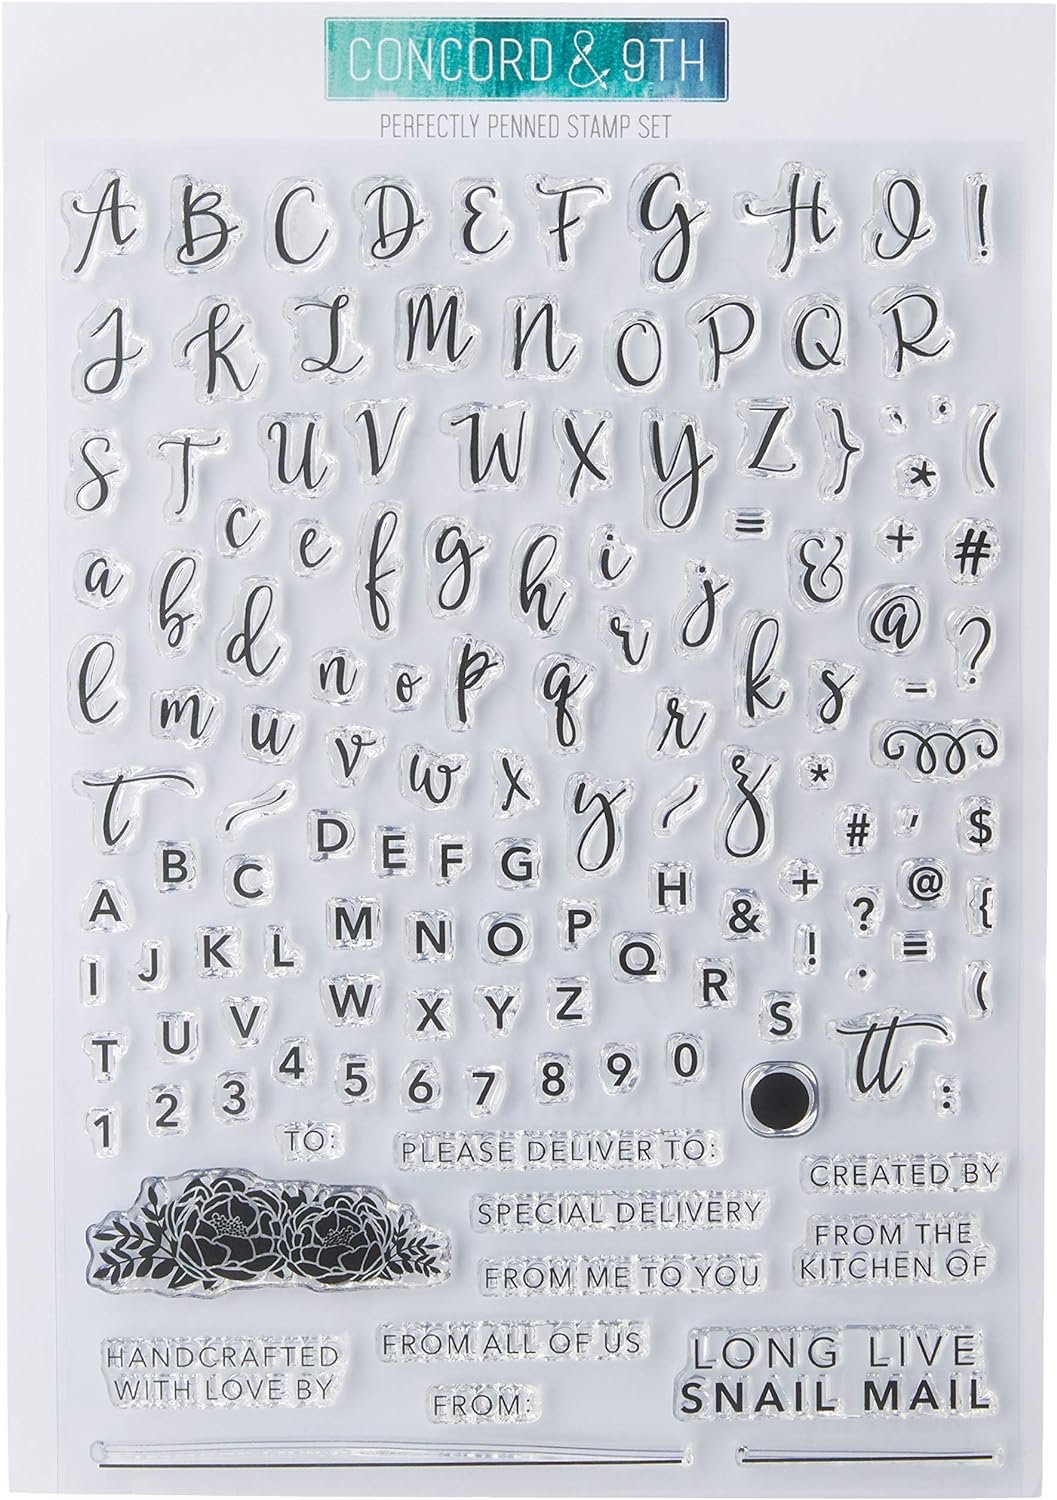 CONCORD & 9TH
PERFECTLY PENNED STAMP SET
A B C D E F G H I !
J K L M N O P Q R
S T U V W X Y Z } ' . * (
a b c d e f g h i j = & + # @ ?
l m n o p q r r k s -
t u v w x y z *
A B C D E F G H & + # ' $ @ {
I J K L M N O P Q R S ! ? . = (
T U V W X Y Z tt :
1 2 3 4 5 6 7 8 9 0
TO:
PLEASE DELIVER TO:
CREATED BY
SPECIAL DELIVERY
FROM THE
KITCHEN OF
FROM ME TO YOU
HANDCRAFTED
WITH LOVE BY
FROM ALL OF US
FROM:
LONG LIVE
SNAIL MAIL